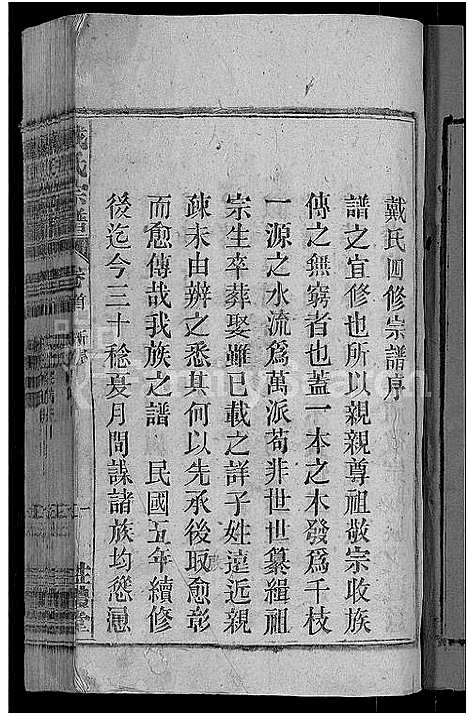 戴氏四修宗譜序
譜之宜修也所以親親尊祖敬宗收族
傳之無窮者也蓋一本之木發爲千枝
一源之水流爲萬派苟非世世纂緝祖
宗生卒葬娶雖已載之詳子姓遠近親
疎未由辨之悉其何以先承後啟愈彰
而愈傳哉我族之譜 民國五年續修
後迄今三十稔夏月間謀諸族均慫慂
氏宗譜
卷首
一